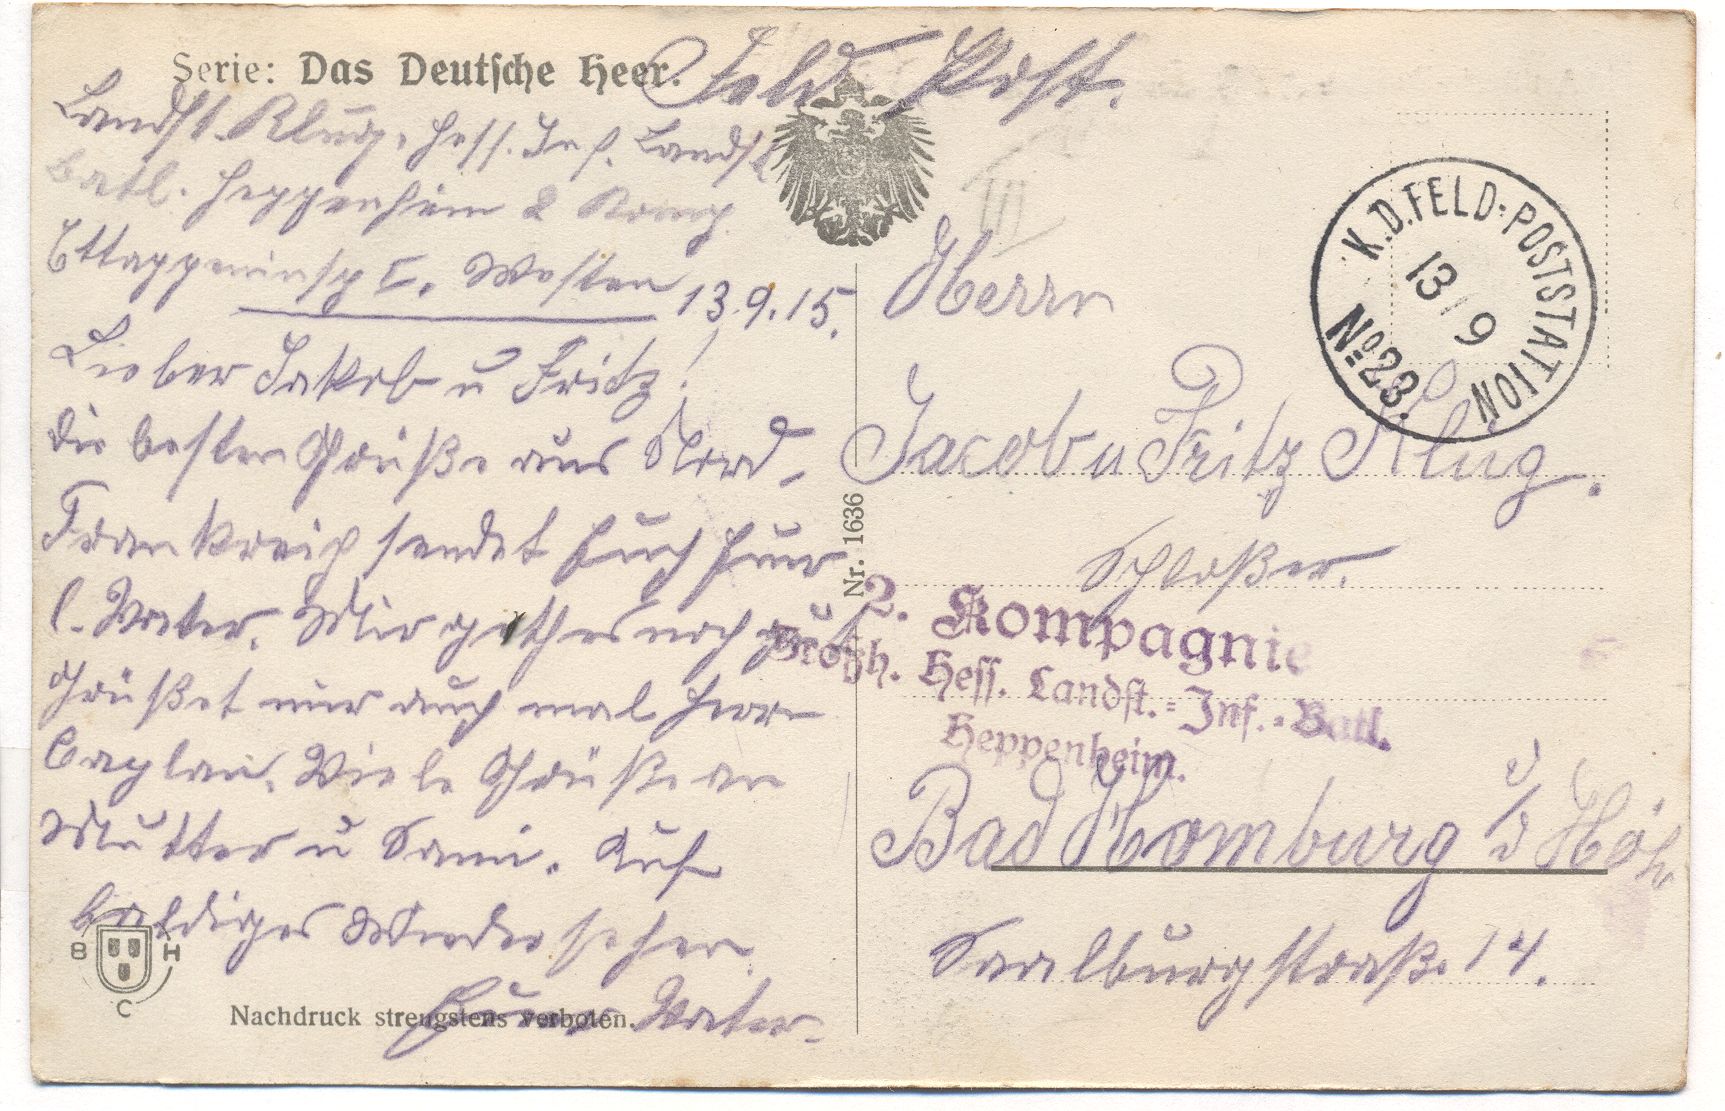 Serie: Das Deutsche Heer.
Feld Post.
Landst. Klug, Hess. Inf. Landst.
Batl. Heppenheim 2 Komp.
Ettappeninsp I. Westen
13.9.15.
Lieber Jakob u Fritz!
die besten Grüße aus Nord-
Frankreich sendet Euch Euer
l. Vater. Mir geht es noch gut
Grüßet mir auch mal Herrn
Caplan. Viele Grüße an
Mutter u Sani. Auf
baldiges Wiedersehen
Euer Vater.
B H C
Nachdruck strengstens verboten.
Nr. 1636
K.D. FELD-POSTSTATION
13/9
No 28.
Herrn
Jacob u Fritz Klug.
Schloßer.
2. Kompagnie
Großh. Hess. Landst.-Inf.-Batl.
Heppenheim.
Bad Homburg v/d Höh.
Saalburgstraße 14.